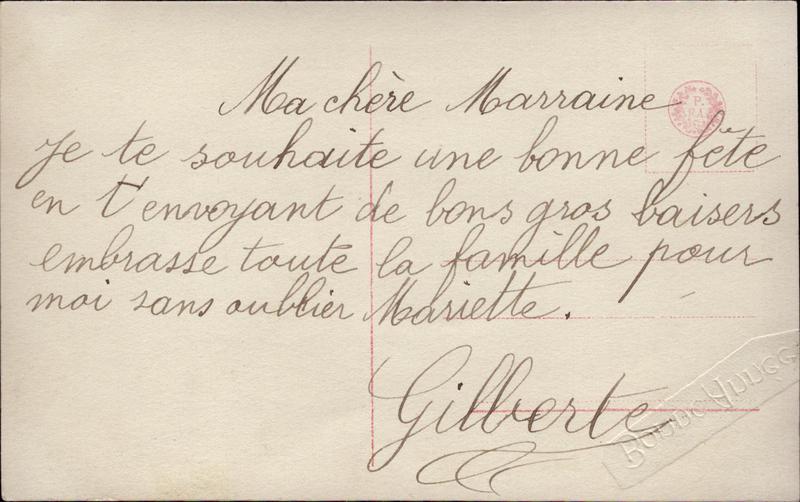 Ma chère Marraine
Je te souhaite une bonne fête
en t'envoyant de bons gros baisers
embrasse toute la famille pour
moi sans oublier Mariette.
Gilberte